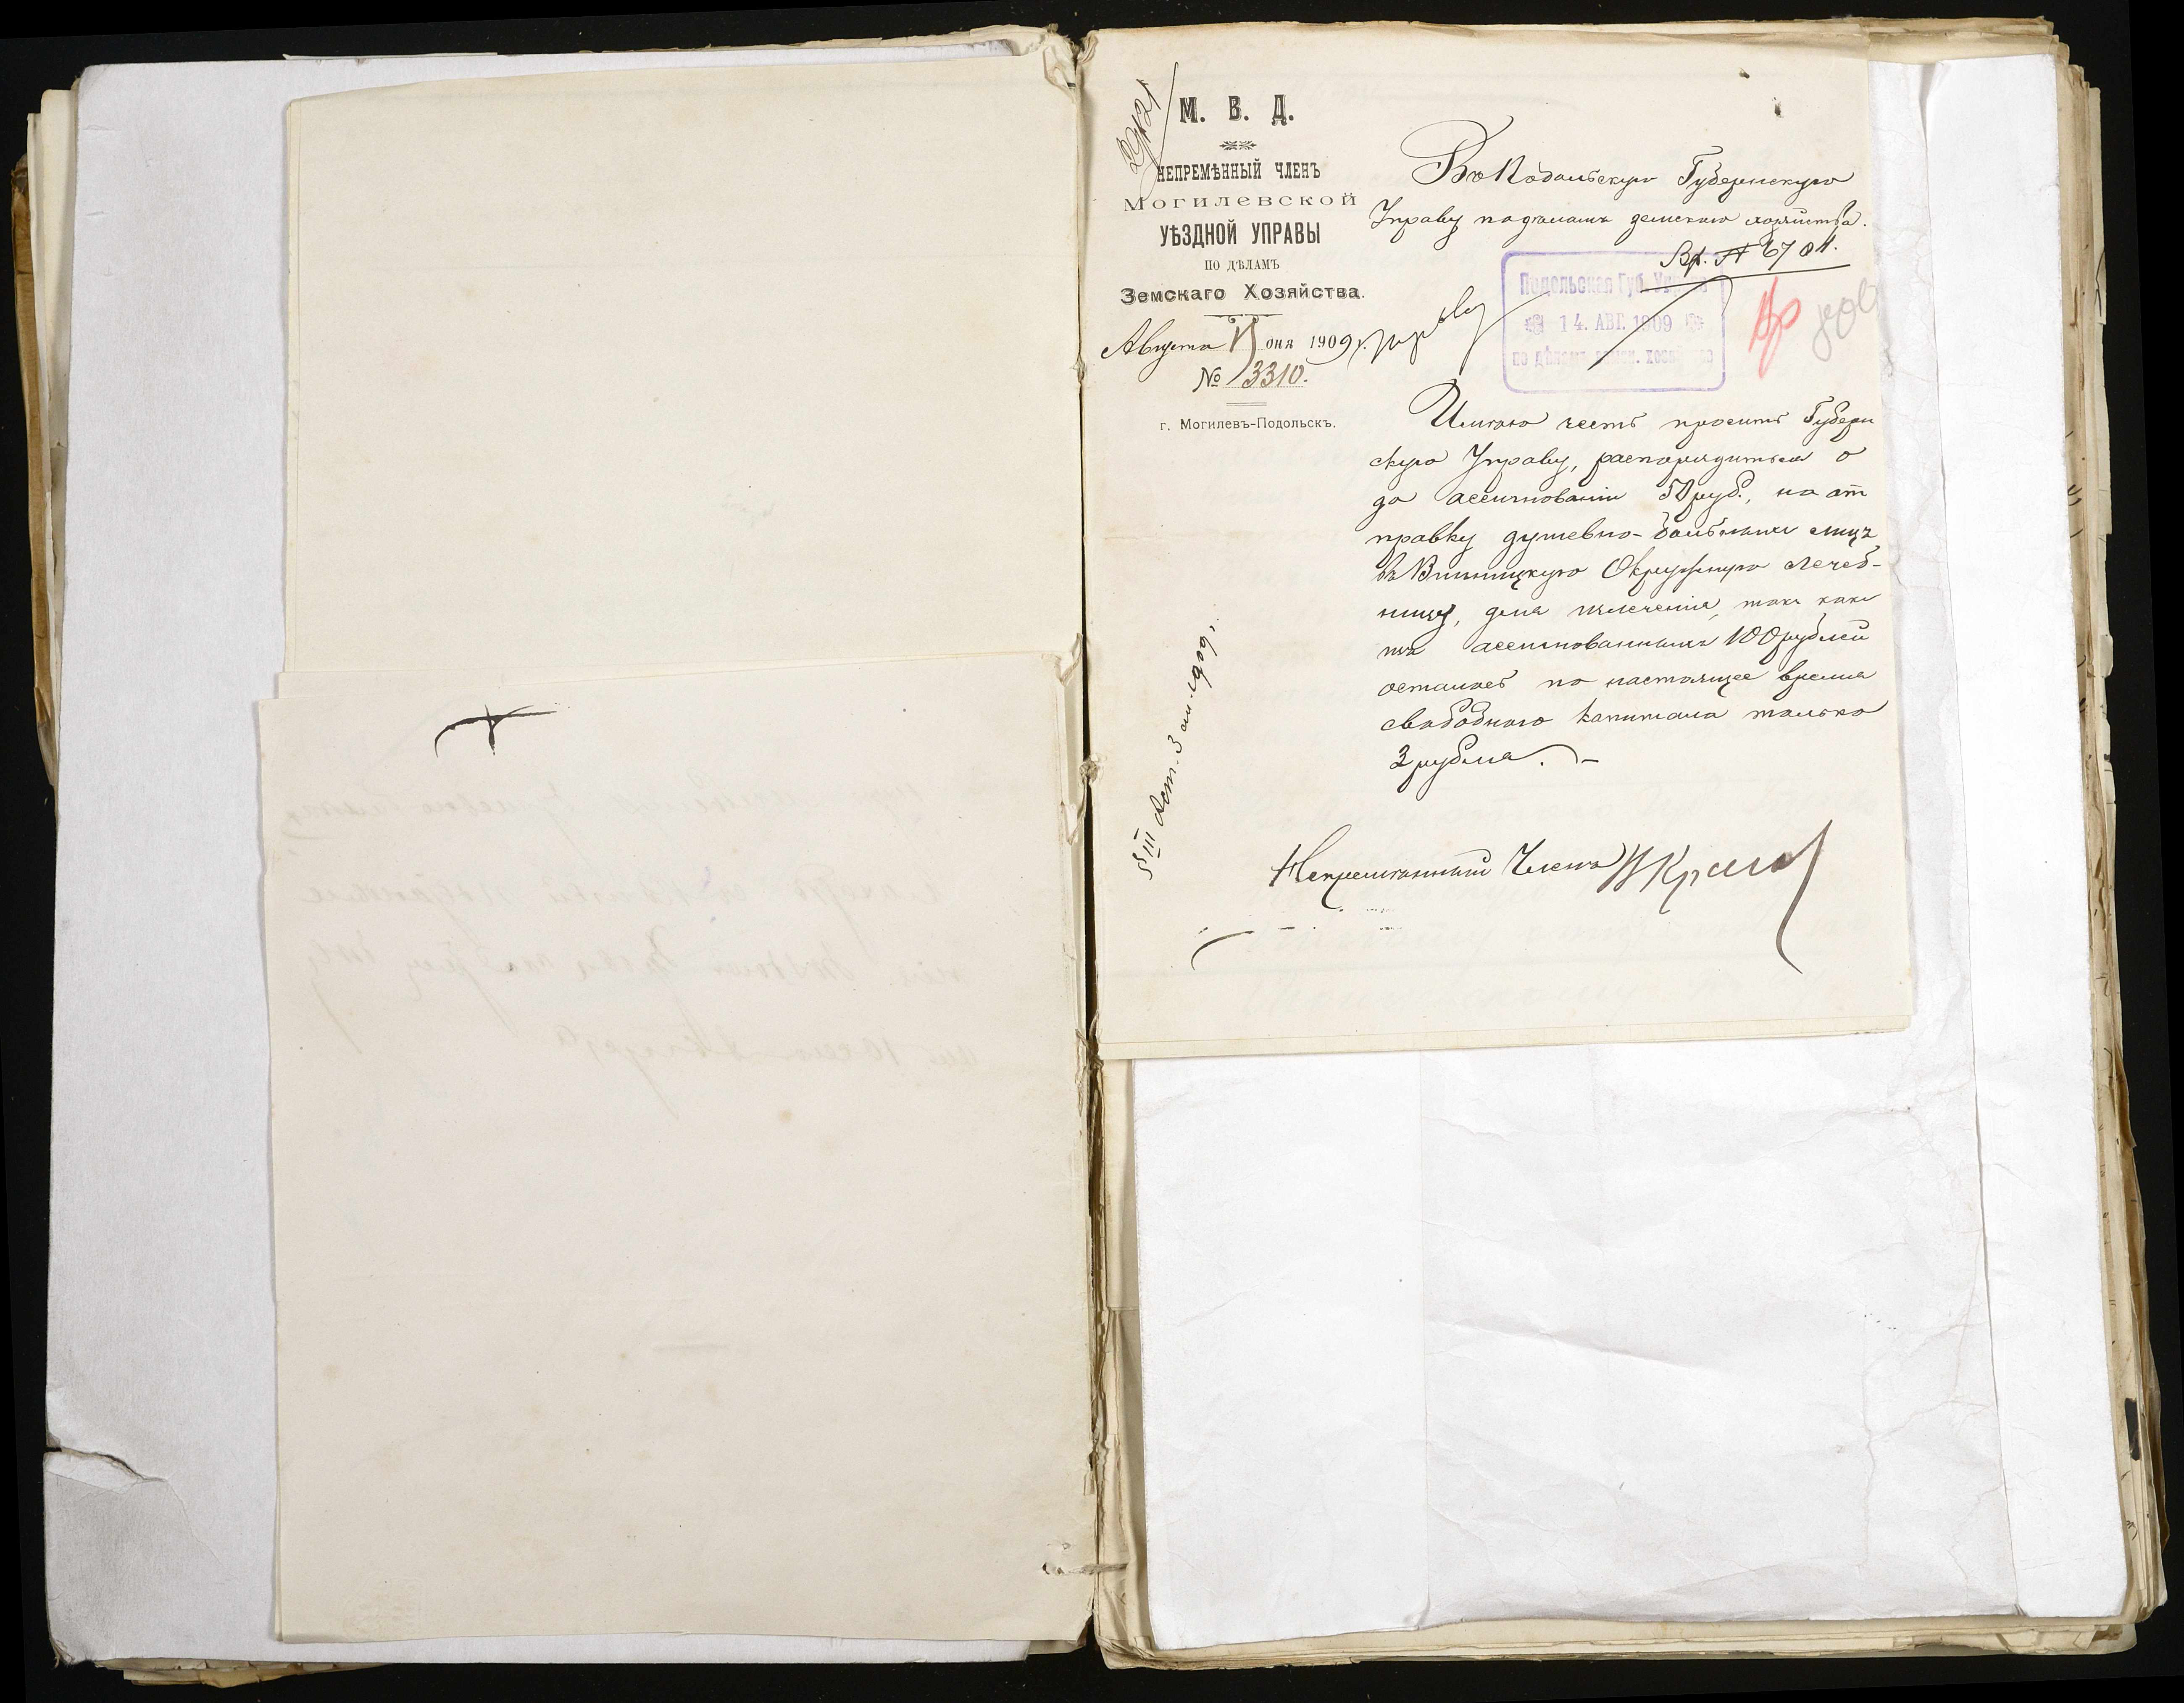 М. В. Д.
НЕПРЕМѢННЫЙ ЧЛЕНЪ
Могилевской
УѢЗДНОЙ УПРАВЫ
ПО ДѢЛАМЪ
Земскаго Хозяйства.
Августа дня 1909 г.
№ 3310.
г. Могилевъ-Подольскъ.
Въ Подольскую Губернскую
Управу по дѣламъ земскаго хозяйства.
Вх. № 6784.
Подольская Губ. Управа
14. АВГ. 1909
по дѣламъ земск. хозяйства
Имѣю честь просить Губерн
скую Управу, распорядиться о
до ассигнованіи 50 руб., на от
правку душевно-больныхъ лицъ
въ Винницкую Окружную Лечеб-
ницу, для излеченія, такъ какъ
изъ ассигнованныхъ 100 рублей
осталось по настоящее время
свободнаго капитала только
3 рубля. –
§ III ст. 3 1909
Непремѣнный Членъ